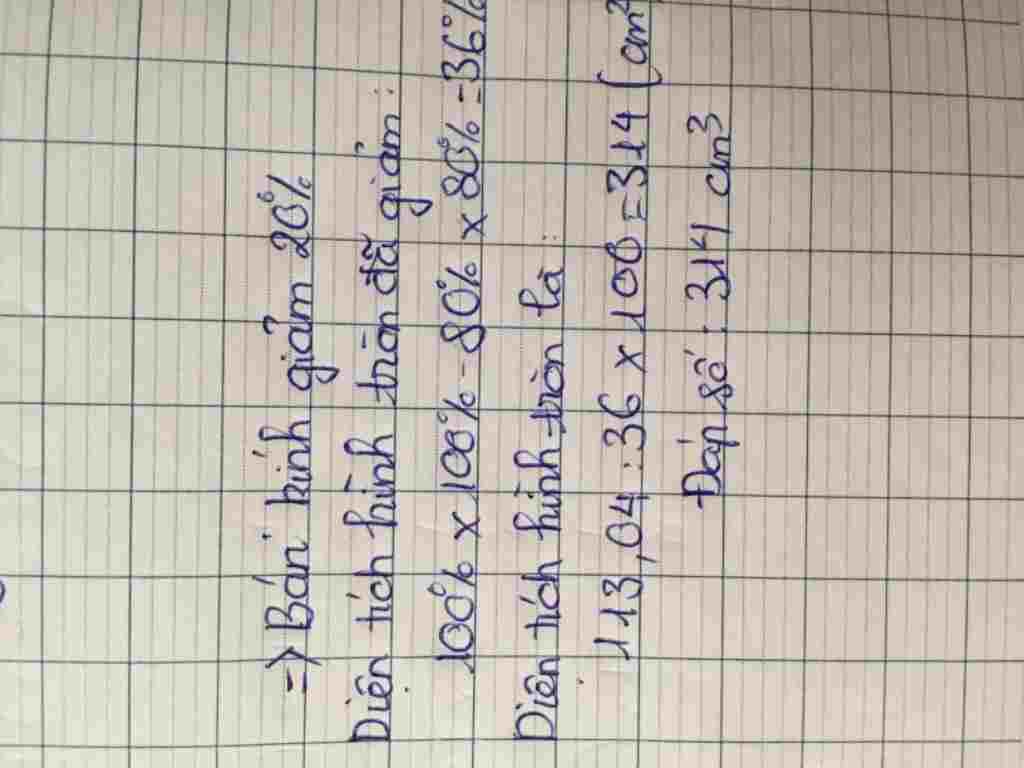 => Bán kính giảm 20%
Diện tích hình tròn đã giảm :
100% x 100% - 80% x 80% = 36%
Diện tích hình tròn là :
113,04 : 36 x 100 = 314 (cm²
Đáp số : 314 cm³